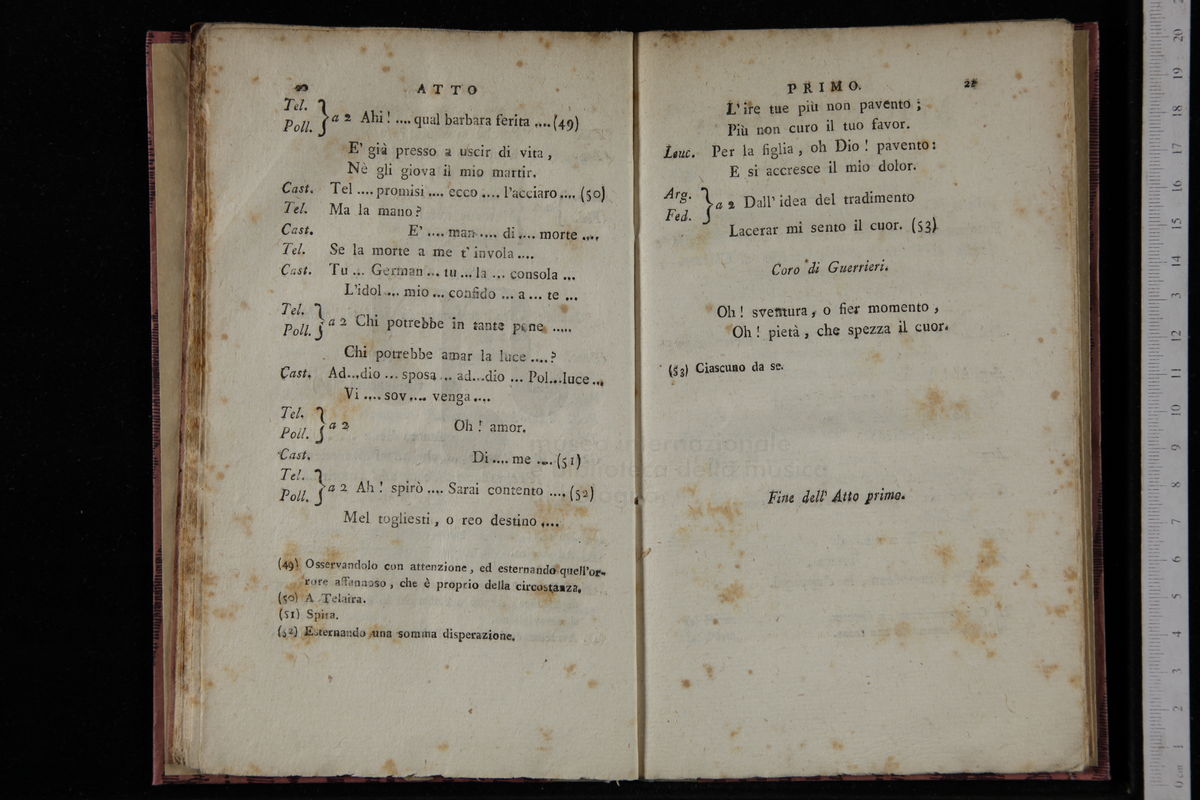 ATTO
Tel.
Poll. } a 2 Ahi! .... qual barbara ferita .... (49)
E' già presso a uscir di vita,
Nè gli giova il mio martir.
Cast. Tel .... promisi .... ecco .... l'acciaro .... (50)
Tel. Ma la mano?
Cast. E' .... man .... di .... morte ....
Tel. Se la morte a me t'invola ....
Cast. Tu ... German ... tu ... la ... consola ...
L'idol ... mio ... confido ... a ... te ...
Tel.
Poll. } a 2 Chi potrebbe in tante pene .....
Chi potrebbe amar la luce ....?
Cast. Ad...dio ... sposa ... ad...dio ... Pol...luce...
Vi .... sov.... venga ....
Tel.
Poll. } a 2 Oh! amor.
Cast. Di .... me .... (51)
Tel.
Poll. } a 2 Ah! spirò .... Sarai contento .... (52)
Mel togliesti, o reo destino ....
(49) Osservandolo con attenzione, ed esternando quell'or-
rore affannoso, che è proprio della circostanza.
(50) A Telaira.
(51) Spira.
(52) Esternando una somma disperazione.
PRIMO. 21
L'ire tue più non pavento;
Più non curo il tuo favor.
Leuc. Per la figlia, oh Dio! pavento:
E si accresce il mio dolor.
Arg.
Fed. } a 2 Dall'idea del tradimento
Lacerar mi sento il cuor. (53)
Coro di Guerrieri.
Oh! sventura, o fier momento,
Oh! pietà, che spezza il cuor.
(53) Ciascuno da se.
Fine dell' Atto primo.
museo internazionale
biblioteca della musica